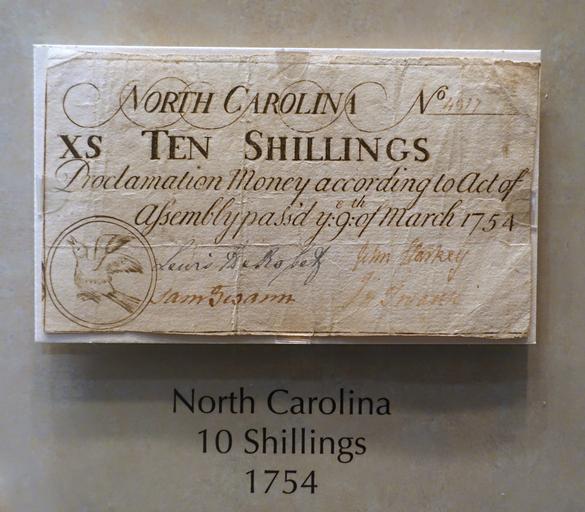 NORTH CAROLINA No 4917
XS TEN SHILLINGS
Proclamation Money according to Act of
Assembly pass'd ye 9th of March 1754
Lewis DeRosset John Starkey
Sam Swann Jn Swann
North Carolina
10 Shillings
1754